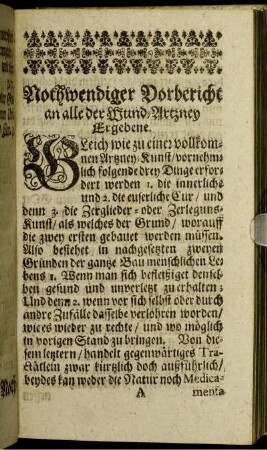 Nothwendiger Vorbericht
an alle der Wund/Artzney
Ergebene.
GLeich wie zu einer vollkom-
nen Artzney-Kunst/vornehm-
lich folgende drey Dinge erfor-
dert werden 1. die innerliche
und 2. die euserliche Cur / und
denn 3. die Zerglieder- oder Zerlegungs-
Kunst/ als welches der Grund / worauff
die zwey ersten gebauet werden müssen.
Also bestehet in nachgesetzten zweyen
Gründen der gantze Bau menschlichen Lei-
bens 1. Wenn man sich befleißiget densel-
ben gesund und unverletzt zu erhalten:
Und denn 2. wenn vor sich selbst oder durch
andre Zufälle dasselbe verlohren worden/
wie es wieder zu rechte / und wo möglich
in vorigen Stand zu bringen. Von die-
sem letztern / handelt gegenwärtiges Tra-
ctätlein zwar kürtzlich doch außführlich/
beydes kan weder die Natur noch Medica-
A menta
Noch